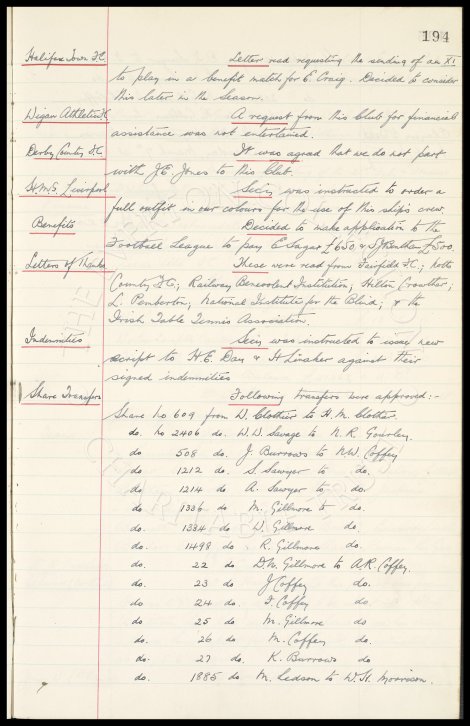 194
Halifax Town F.C. Letter read requesting the sending of an XI
to play in a benefit match for E. Craig. Decided to consider
this later in the Season.
Wigan Athletic F.C. A request from this Club for financial
assistance was not entertained.
Derby County F.C. It was agreed that we do not part
with J.E. Jones to this Club.
H.M.S. Liverpool Secy. was instructed to order a
full outfit in our colours for the use of this ship's crew.
Benefits Decided to make application to the
Football League to pay E. Sagar £650, & S.J. Bentham £500.
Letters of Thanks These were read from Fairfield F.C.; Notts
County F.C.; Railway Benevolent Institution; Hilton Crowther;
L. Pemberton; National Institute for the Blind; & the
Irish Table Tennis Association.
Indemnities Secy. was instructed to issue new
script to H.E. Day & H. Linaker against their
signed indemnities
Share Transfers Following transfers were approved:-
Share No 609 from W. Clothier to H.M. Clothier.
do. No 2406 do. W.W. Savage to N.R. Gourley.
do 508 do. J. Burrows to N.W. Coffey
do 1212 do. S. Sawyer to do.
do 1214 do A. Sawyer to do.
do 1336 do. M. Gillmore to do.
do. 1334 do W. Gillmore do
do. 1498 do R. Gillmore do.
do. 22 do D.W. Gillmore to A.R. Coffey.
do. 23 do J Coffey do.
do 24 do. F. Coffey do
do 25 do M. Gillmore do
do. 26 do M. Coffey do.
do. 27 do. K. Burrows do
do. 1885 do M. Ledson to W.H. Morrison.